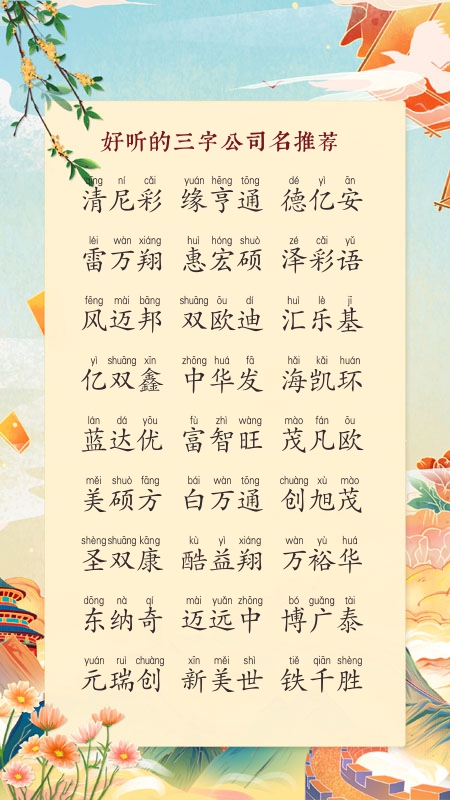 好听的三字公司名推荐
qīng ní cǎi yuán hēng tōng dé yì ān
清尼彩 缘亨通 德亿安
léi wàn xiáng huì hóng shuò zé cǎi yǔ
雷万翔 惠宏硕 泽彩语
fēng mài bāng shuāng ōu dí huì lè jī
风迈邦 双欧迪 汇乐基
yì shuāng xīn zhōng huá fā hǎi kǎi huán
亿双鑫 中华发 海凯环
lán dá yōu fù zhì wàng mào fán ōu
蓝达优 富智旺 茂凡欧
měi shuò fāng bái wàn tōng chuàng xù mào
美硕方 白万通 创旭茂
shèng shuāng kāng kù yì xiáng wàn yù huá
圣双康 酷益翔 万裕华
dōng nà qí mài yuǎn zhōng bó guǎng tài
东纳奇 迈远中 博广泰
yuán ruì chuàng xīn měi shì tiě qiān shèng
元瑞创 新美世 铁千胜